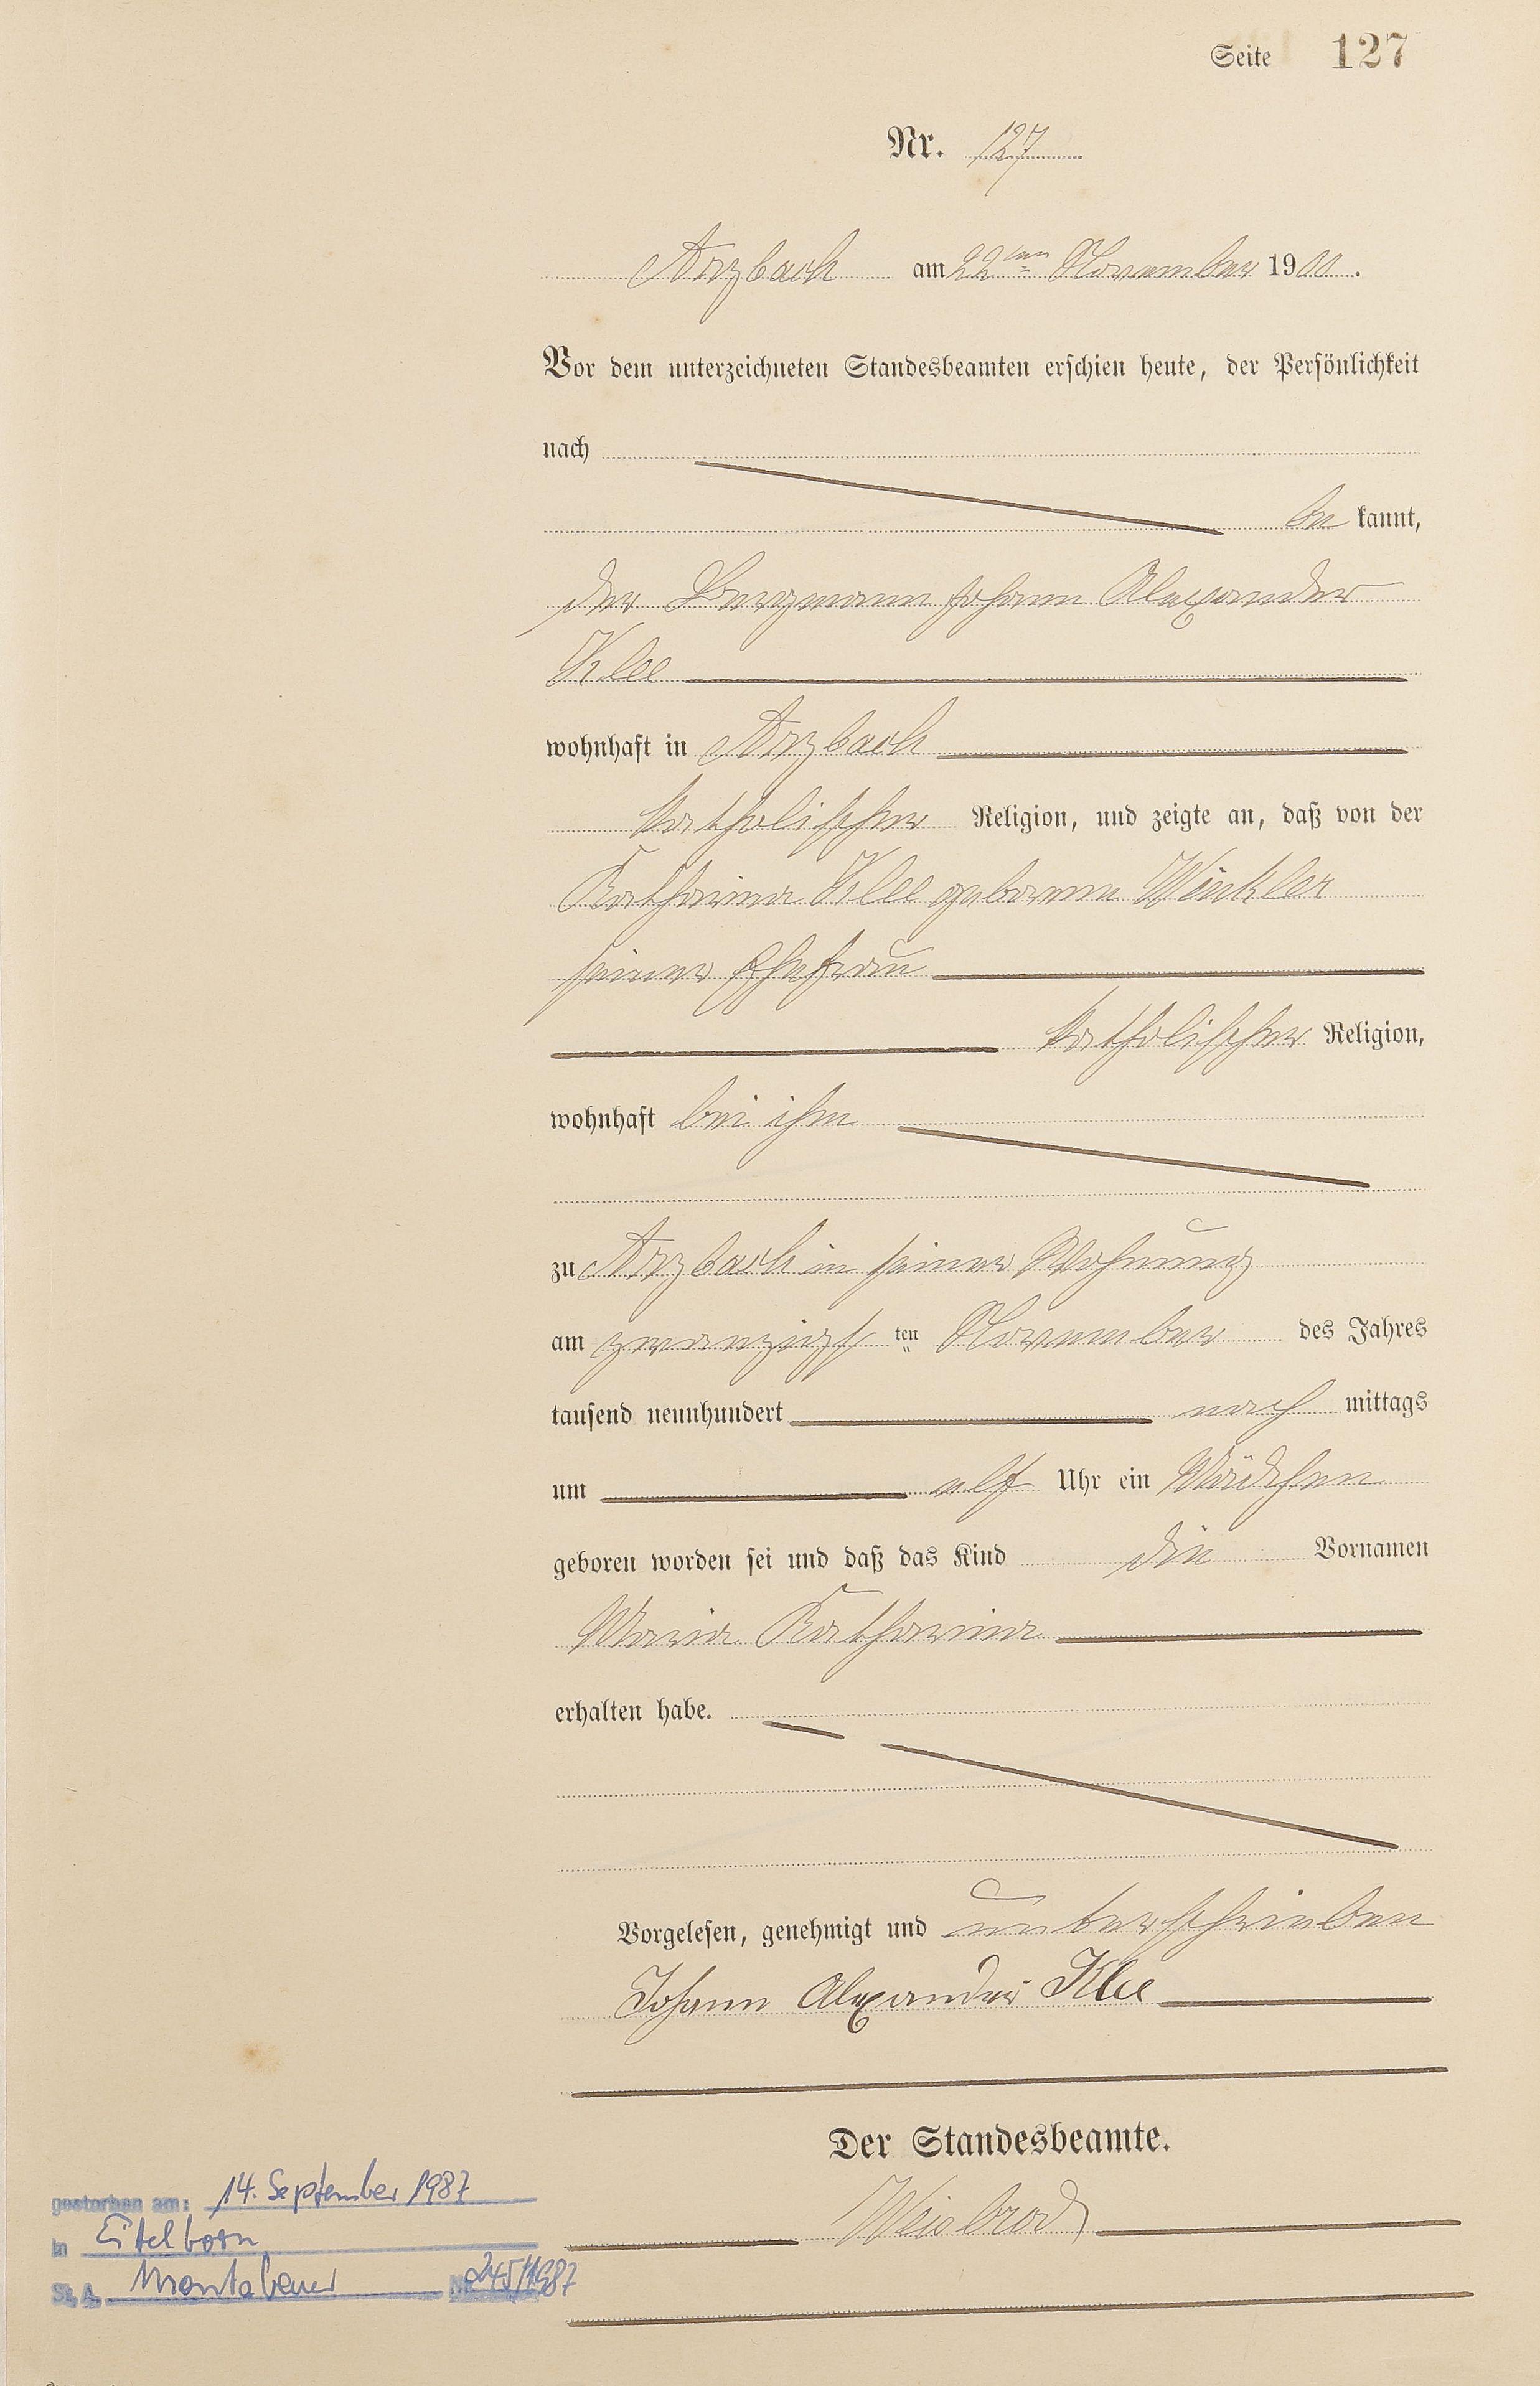 Seite 127
Nr. 127
Arzbach am 22ten November 1900.
Vor dem unterzeichneten Standesbeamten erschien heute, der Persönlichkeit
nach
be kannt,
der Bergmann Johann Alexander
Klee
wohnhaft in Arzbach
katholischer Religion, und zeigte an, daß von der
Katharina Klee geborene Winkler
seiner Ehefrau
katholischer Religion,
wohnhaft bei ihm
zu Arzbach in seiner Wohnung
am zwanzigs ten November des Jahres
tausend neunhundert nach mittags
um elf Uhr ein Mädchen
geboren worden sei und daß das Kind die Vornamen
Maria Katharina
erhalten habe.
Vorgelesen, genehmigt und unterschrieben
Johann Alexander Klee
Der Standesbeamte.
Weisbrod
gestorben am: 14. September 1987
in Eitelborn
St. A. Montabaur Nr. 245/1987